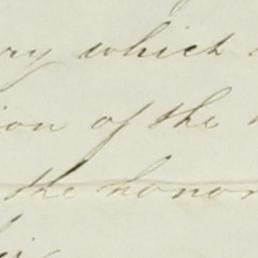 ry which
ion of the
the honor